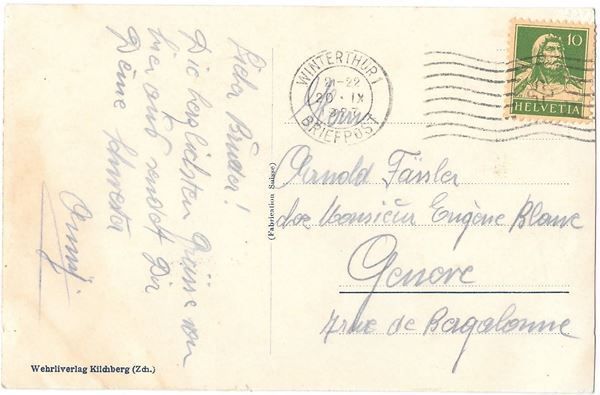 Lieber Bruder!
Die herzlichsten Grüsse von
hier aus sendet Dir
Deine Schwester
Anny
(Fabrication Suisse)
Wehrliverlag Kilchberg (Zch.)
WINTERTHUR 1
21-22
20 · IX
BRIEFPOST
10
HELVETIA
Arnold Fässler
Monsieur Eugène Blanc
Genève
rue de